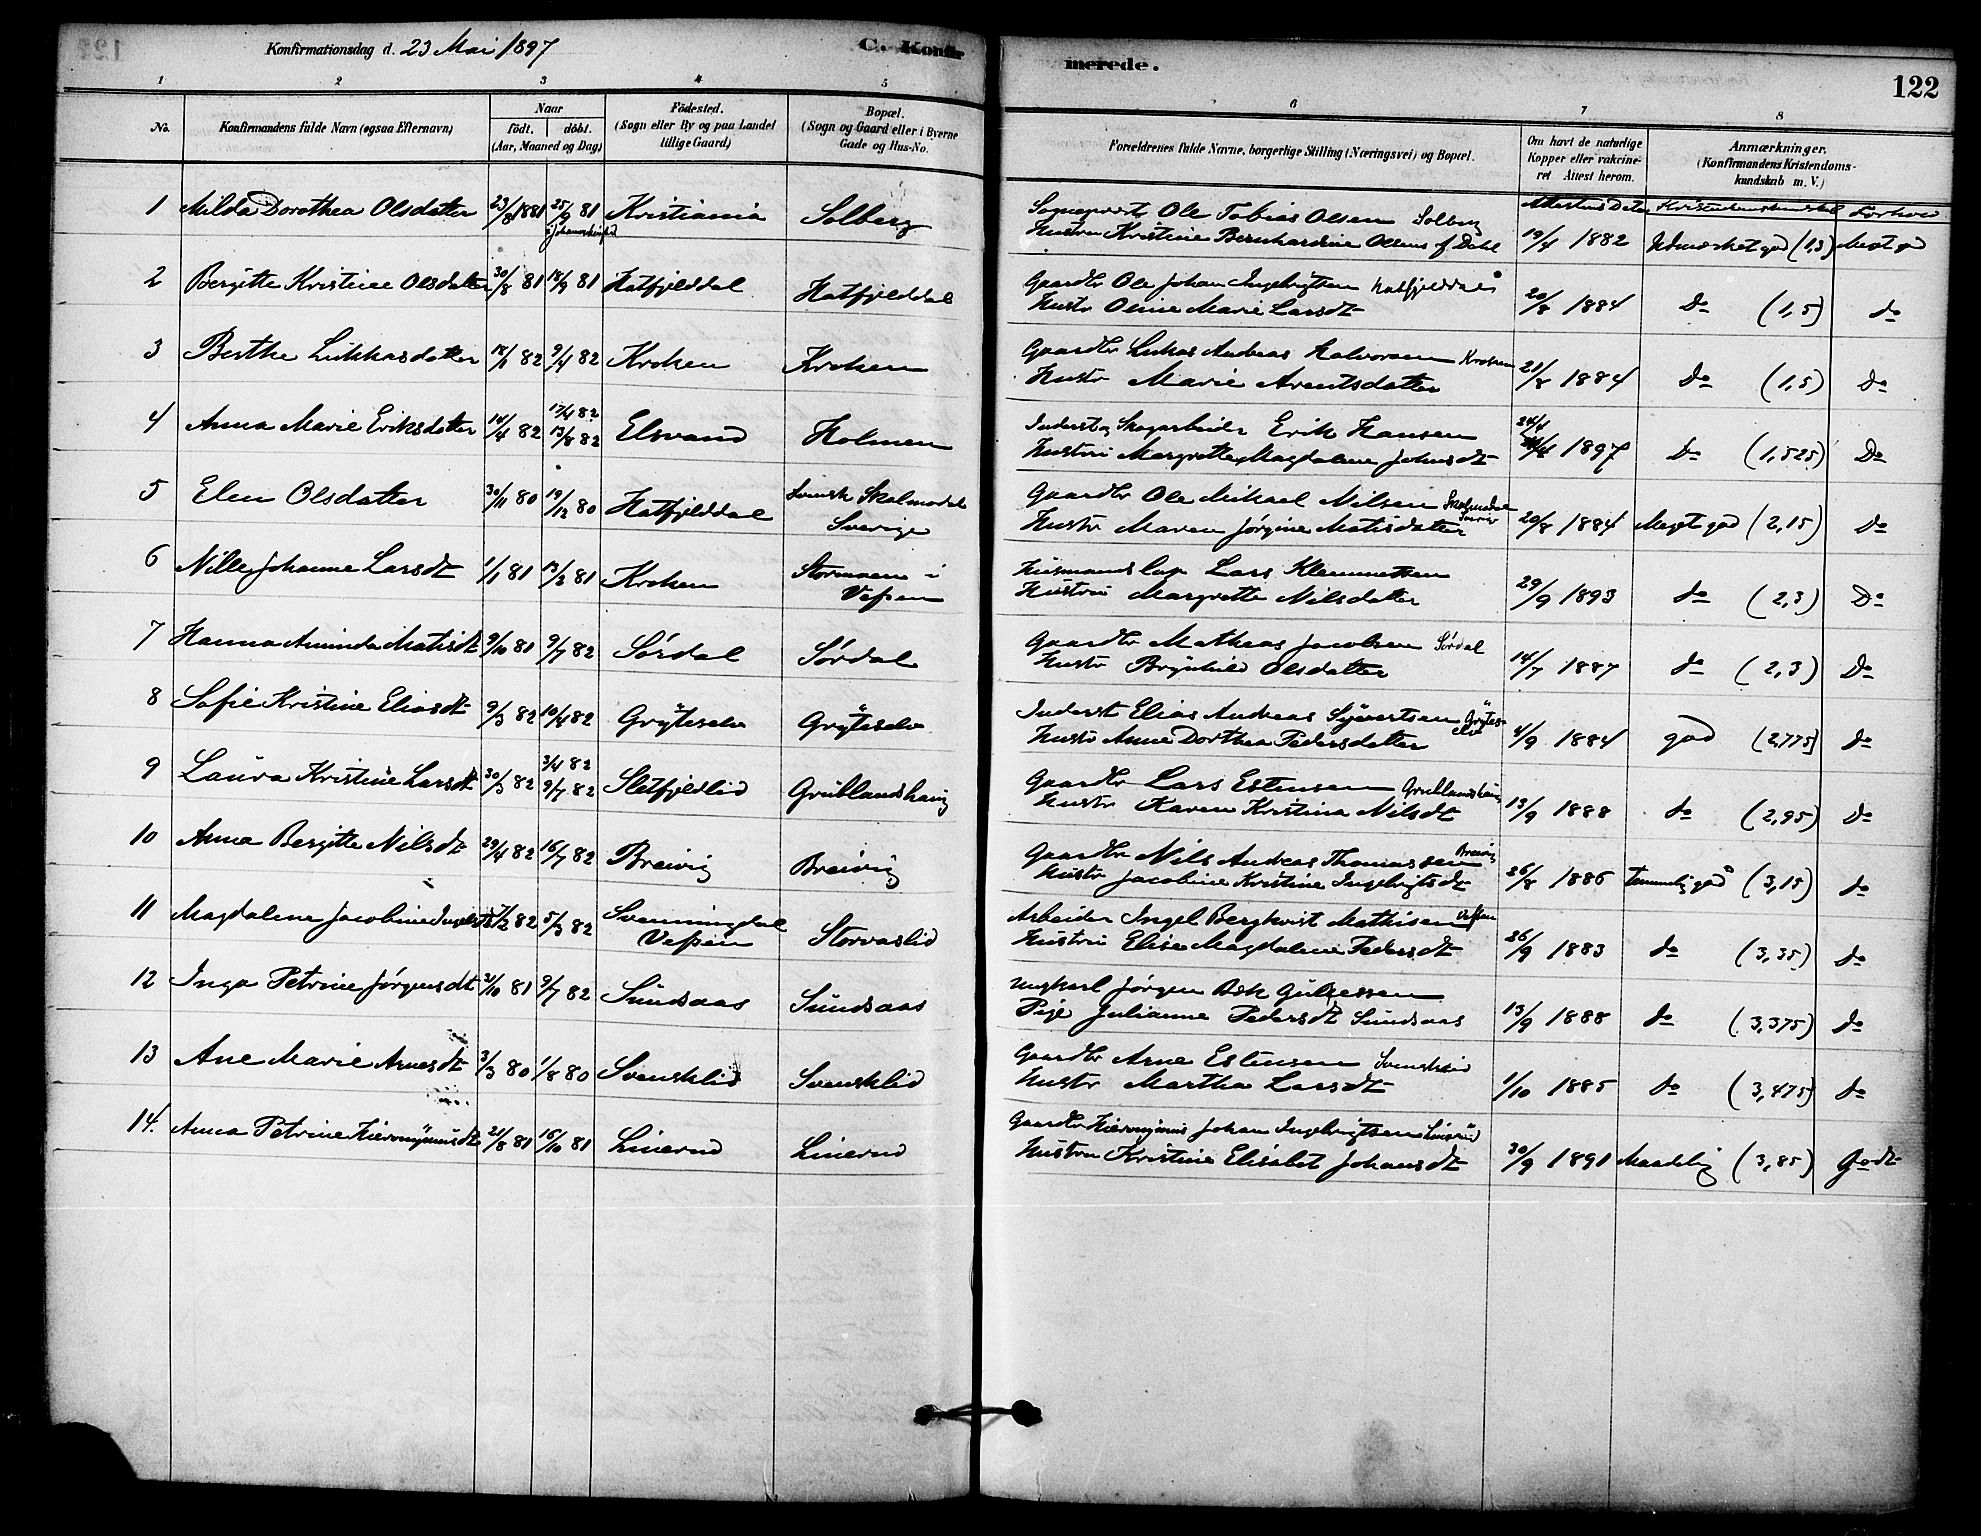 Konfirmationsdag d. 23 Mai 1897
C. Konfirmerede.
122
1 2 3 4 5 6 7 8
No. Konfirmandens fulde Navn (ogsaa Efternavn) Naar födt. döbt. (Aar, Maaned og Dag) Födested. (Sogn eller By og paa Landet tillige Gaard) Bopæl. (Sogn og Gaard eller i Byerne Gade og Hus-No. Forældrenes fulde Navne, borgerlige Stilling (Næringsvei) og Bopæl. Om havt de naturlige Kopper eller vakcineret Attest herom. Anmærkninger. (Konfirmandens Kristendomskundskab m. V.)
Attestens Dato Kristendomskundskab Forhold
1 Milda Dorothea Olsdatter 23/8 1881 25/9 81 Kristiania Solberg Sogneprest Ole Tobias Olsen Solberg
Hustru Kristine Bernhardine Olsens f. Dahl 19/4 1882 Udmerket god (1,3) Meget god
2 Bergitte Kristine Olsdatter 30/8 81 18/9 81 Hatfjelddal Hatfjelddal Gaardbr Ole Johan Ingebrigtsen Hatfjelddal
Hustr Oline Marie Larsdt 20/8 1884 Do (1,5) do
3 Berthe Lukkasdatter 18/1 82 9/4 82 Kroken Kroken Gaardbr Lukas Andreas Halvorsen Kroken
Hustr Marie Arentsdatter 21/8 1884 Do (1,5) Do
4 Anna Marie Eriksdatter 14/4 82 17/4 82 13/8 82 Elsvand Holmen Inderst og Skogarbeider Erik Hansen
Hustru Margrethe Magdalene Johnsdt 24/4 1897 Do (1,525) Do
5 Elen Olsdatter 30/11 80 19/12 80 Hatfjelddal Svensk Skalmodal Sverige Gaardbr Ole Mikael Nilsen Skalmodal Sverig
Hustr Maren Jørgine Matisdatter 20/8 1884 Meget god (2,15) Do
6 Nille Johanne Larsdt 1/1 81 13/2 81 Kroken Stormoen i Vefsen Husmand Lap Lars Klemmetsen
Hustru Margrette Nilsdatter 29/9 1893 do (2,3) Do
7 Hanna Aminda Matisdt 9/10 81 9/7 82 Sørdal Sørdal Gaardbr Matheas Jacobsen Sørdal
Hustr Brynhild Olsdatter 14/7 1887 do (2,3) Do
8 Sofie Kristine Eliasdt 9/3 82 10/4 82 Grÿteselv Grÿteselv Inderst Elias Andreas Syvertsen Grÿteselv
Hustr Anne Dorthea Pedersdatter 4/9 1884 god (2,775) do
9 Laura Kristine Larsdt 30/3 82 3/4 82 9/7 82 Sletfjeldlid Grublandshaug Gaardbr Lars Estensen Grublandshaug
Hustr Karen Kristina Nilsdt 13/9 1888 do (2,95) Do
10 Anna Bergitte Nilsdt 29/4 82 16/7 82 Breivig Breivig Gaardbr Nils Andreas Thomassen Breivig
Hustr Jacobine Kristine Ingebrigtsdt 26/8 1886 Temmelig god (3,15) do
11 Magdalene Jacobine Ingelsdt 7/2 82 5/3 82 Svenningdal Vefsen Storvaslid Arbeider Ingel Bergkvist Mathisen Vefsen
Hustru Elise Magdalene Pedersdt 26/9 1883 do (3,35) do
12 Inga Petrine Jørgensdt 31/10 81 9/7 82 Sundsaas Sundsaas Ungkarl Jørgen Ask
Pige Julianne Pedersdt Sundsaas 13/9 1888 do (3,375) do
13 Ane Marie Arnesdt 3/3 80 1/8 80 Svensklid Svensklid Gaardbr Arne Estensen Svensklid
Hustr Martha Larsdt 1/10 1885 do (3,475) do
14. Anna Petrine Hieronymusdt 21/8 81 16/10 81 Linerud Linerud Gaardbr Hieronymus Johan Ingebrigtsen Linerud
Hustru Kristine Elisabet Johansdt 30/9 1891 Maadelig (3,85) Godt